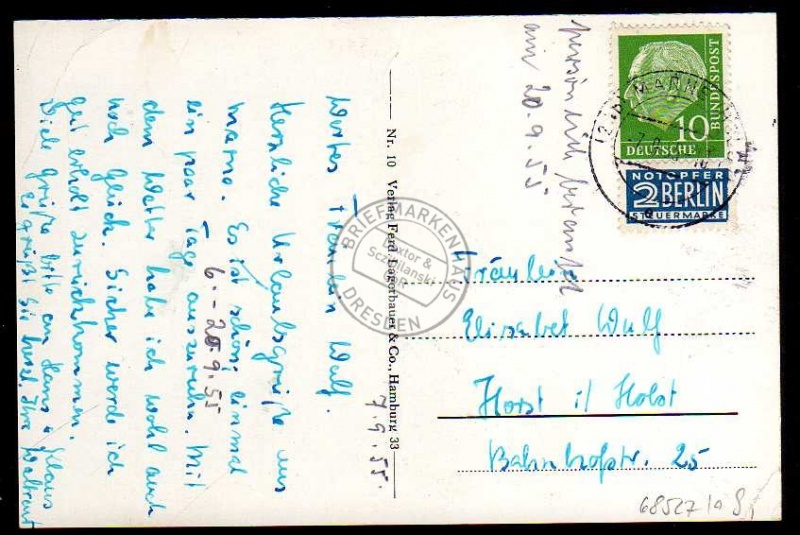 Werbes Fräulein Wulf.
Herzliche Urlaubsgrüße aus
Es ist schön, einmal
ein paar Tage auszuruhn. Mit
6. - 20.9.55
dem Wetter habe ich wohl auch
noch Glück. Sicher werde ich
gut erholt zurückkommen.
Viele Grüße bitte an Hans u. Klaus
Es grüßt Sie herzl. Ihre Waltraut
7.9.55.
Nr. 10 Verlag Ferd. Lagerbauer & Co., Hamburg 33
persönlich
am 20.9.55
10
DEUTSCHE
BUNDESPOST
NOTOPFER
2 BERLIN
STEUERMARKE
BRIEFMARKENHAUS
Sczepilanski
GbR
DRESDEN
Fräulein
Elisabet Wulf
Horst i/ Holst
Bahnhofstr. 25
68527/a